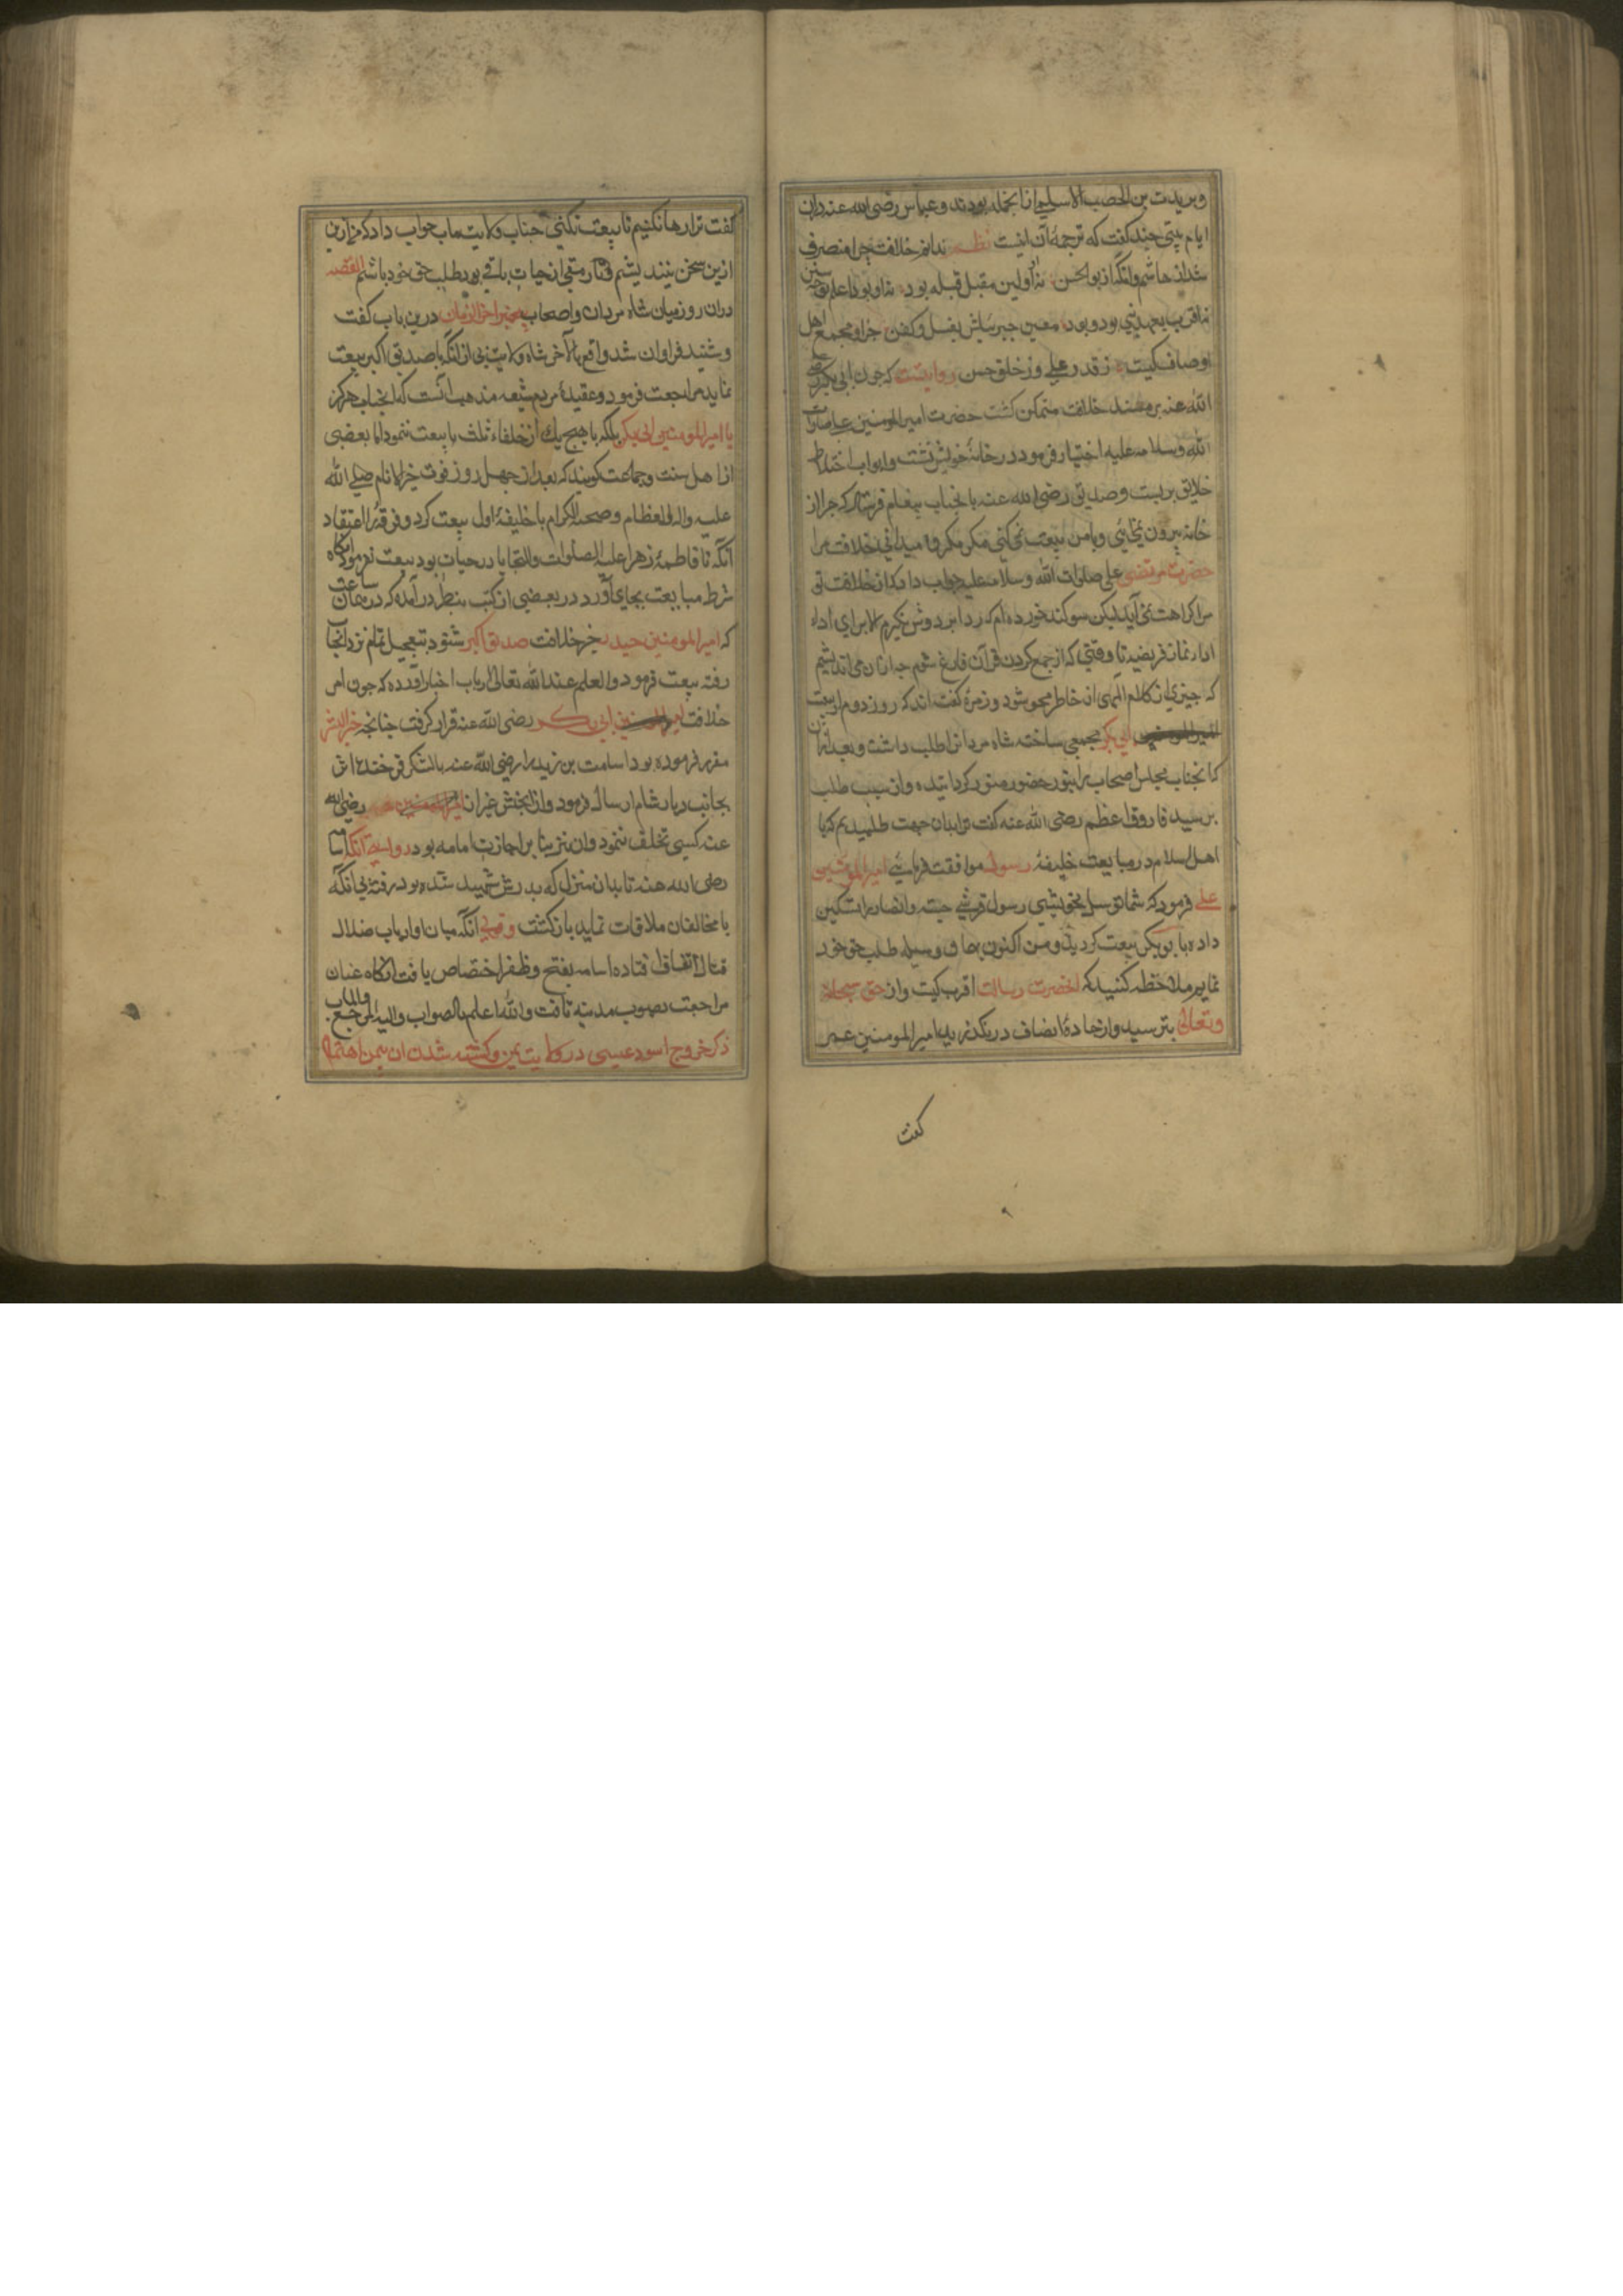 وبریدت بن الحصیب الاسلمی ازانجمله بودند وعباس رضی الله عنه دران
ایام بیتی چند کفت که ترجمهٔ آن اینست نظم ندانم خلافت چرا منصرف
شد از هاشم وانکه از بوالحسن نه اولین مقبل قبله بود نه او بود اعلم بوحی وسنن
نه اقرب بعهد نبی بود وبود معین جبرئیلش بغسل وکفن جز او مجمع اهل
اوصاف کیست ز قدر علی وز خلق حسن روایتست که چون ابی بکر رضی
الله عنه بر مسند خلافت متمکن کشت حضرت امیرالمومنین علی صلوات
الله وسلامه علیه اختیار فرمود در خانهٔ خویش نشست وابواب اختلاط
خلایق بر بست وصدیق رضی الله عنه بانجناب پیغام فرستاد که چرا از
خانه بیرون نمی‌آیی وبا من بیعت نمی‌کنی مکر مکروه میدانی خلافت مرا
حضرت مرتضی علی صلوات الله وسلامه علیه جواب داد که از خلافت تو
مرا کراهت نمی آید لیکن سوکند خورده‌ام که ردا بر دوش نکیرم الا برای اداء
اداء نماز فریضه تا وقتی که از جمع کردن قرآن فارغ شوم چه ازان می اندیشم
که چیزی از کلام الهی از خاطر محو شود وزمرهٔ کفته اند که روز دوم از بیعت
امیرالمومنین ابی بکر مجمعی ساخته شاه مردانرا طلب داشت وبعد ازان
که انجناب مجلس اصحاب را بنور حضور منور کردانیده وان سبب طلب
پرسید فاروق اعظم رضی الله عنه کفت ترا بدان جهت طلبیدیم که با
اهل اسلام در مبایعت خلیفهٔ رسول موافقت فرمائی امیرالمومنین
علی فرمود که شما توسل بخویشی رسول قرشی جسته وانصار را تسکین
داده با بوبکر بیعت کردید ومن اکنون بهمان وسیله طلب حق خود
نمایم ملاحظه کنید که انحضرت رسالت اقرب کیست واز حق سبحانه
وتعالی بترسید واز جادهٔ انصاف در نکذرید امیرالمومنین عمر
کفت
کفت ترا رها نکنیم تا بیعت نکنی جناب ولایت ماب جواب داد که من ازین
ازین سخن نیندیشم وتا رمقی از حیات باقی بود طلب حق خود باشم القصه
دران روز میان شاه مردان واصحاب پیغمبر اخرالزمان درین باب کفت
وشنید فراوان شد واقع بالاخر شاه ولایت بی ازانکه با صدیق اکبر بیعت
نماید مراجعت فرمود وعقیدهٔ مردم شیعه مذهب انست که انجناب هرکز
با امیرالمومنین ابی بکر بلکه با هیچ یک از خلفاء ثلث بابیعت ننمود اما بعضی
از اهل سنت وجماعت کویند که بعد از چهل روز فوت خیر الانام صلی الله
علیه واله العظام وصحبه الکرام با خلیفهٔ اول بیعت کرد وفرقهٔ را اعتقاد
آنکه تا فاطمهٔ زهرا علیه الصلوات والتحایا در حیات بود بیعت نفرمود انکاه
شرط مبایعت بجای آورد در بعضی از کتب بنظر در آمده که در همان ساعت
که امیرالمومنین حیدر خبر خلافت صدیق اکبر شنود بتعجیل تمام نزد انجناب
رفته بیعت فرمود والعلم عند الله تعالی ارباب اخبار آورده که چون امر
خلافت امیرالمومنین ابی بکر رضی الله عنه قرار کرفت چنانچه خیرالبشر
مقرر فرموده بود اسامت بن زید را رضی الله عنه بالشکر فرخنده اثر
بجانب دیار شام ارسال فرمود وازان جیش غیر از امیرالمومنین عمر رضی الله
عنه کسی تخلف ننمود وان نیز بنا بر اجازت اسامه بود روایتی انکه اسامه
رضی الله عنه تا بدان منزل که پدرش شهید شده بود رفته بی انکه
با مخالفان ملاقات نماید باز کشت وقولی آنکه میان او ارباب ضلال
قتال اتفاق افتاده اسامه بفتح وظفر اختصاص یافت انکاه عنان
مراجعت بصوب مدینه تافت والله اعلم بالصواب والیه المرجع والماب
ذکر خروج اسود عیسی در ولایت یمن وکشته شدن ان بیمن اهتمام